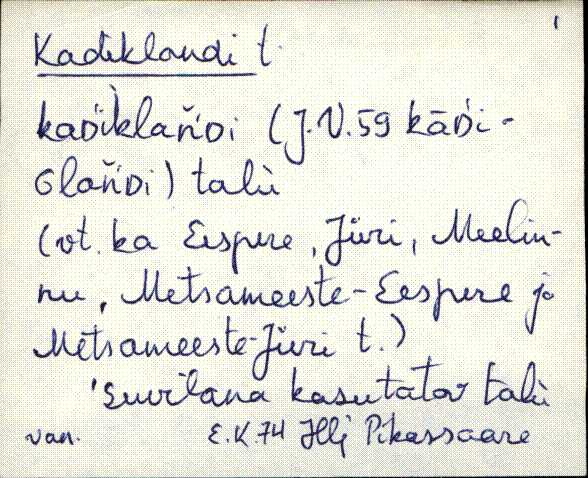 1
Kadiklandi t.
kaDiklańDi (J.V.59 kāDi-
Glańdi) talù
(vt. ka Eespere, Jüri, Meelin-
nu, Metsameeste-Eespere ja
Metsameeste-Jüri t.)
'suvilana kasutatav talù
van. E.K.74 Hlj Pikassaare